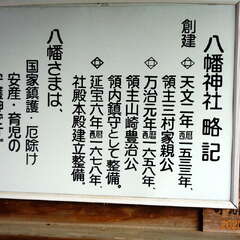 八幡神社 略記
創建
天文二年西暦一五三三年、
領主三村家親公
万治元年西暦一六五八年、
領主山崎豊治公
領内鎮守として整備。
延宝六年西暦一六七八年、
社殿本殿建立整備。
八幡さまは、
国家鎮護・厄除け
安産・育児の
守護神です